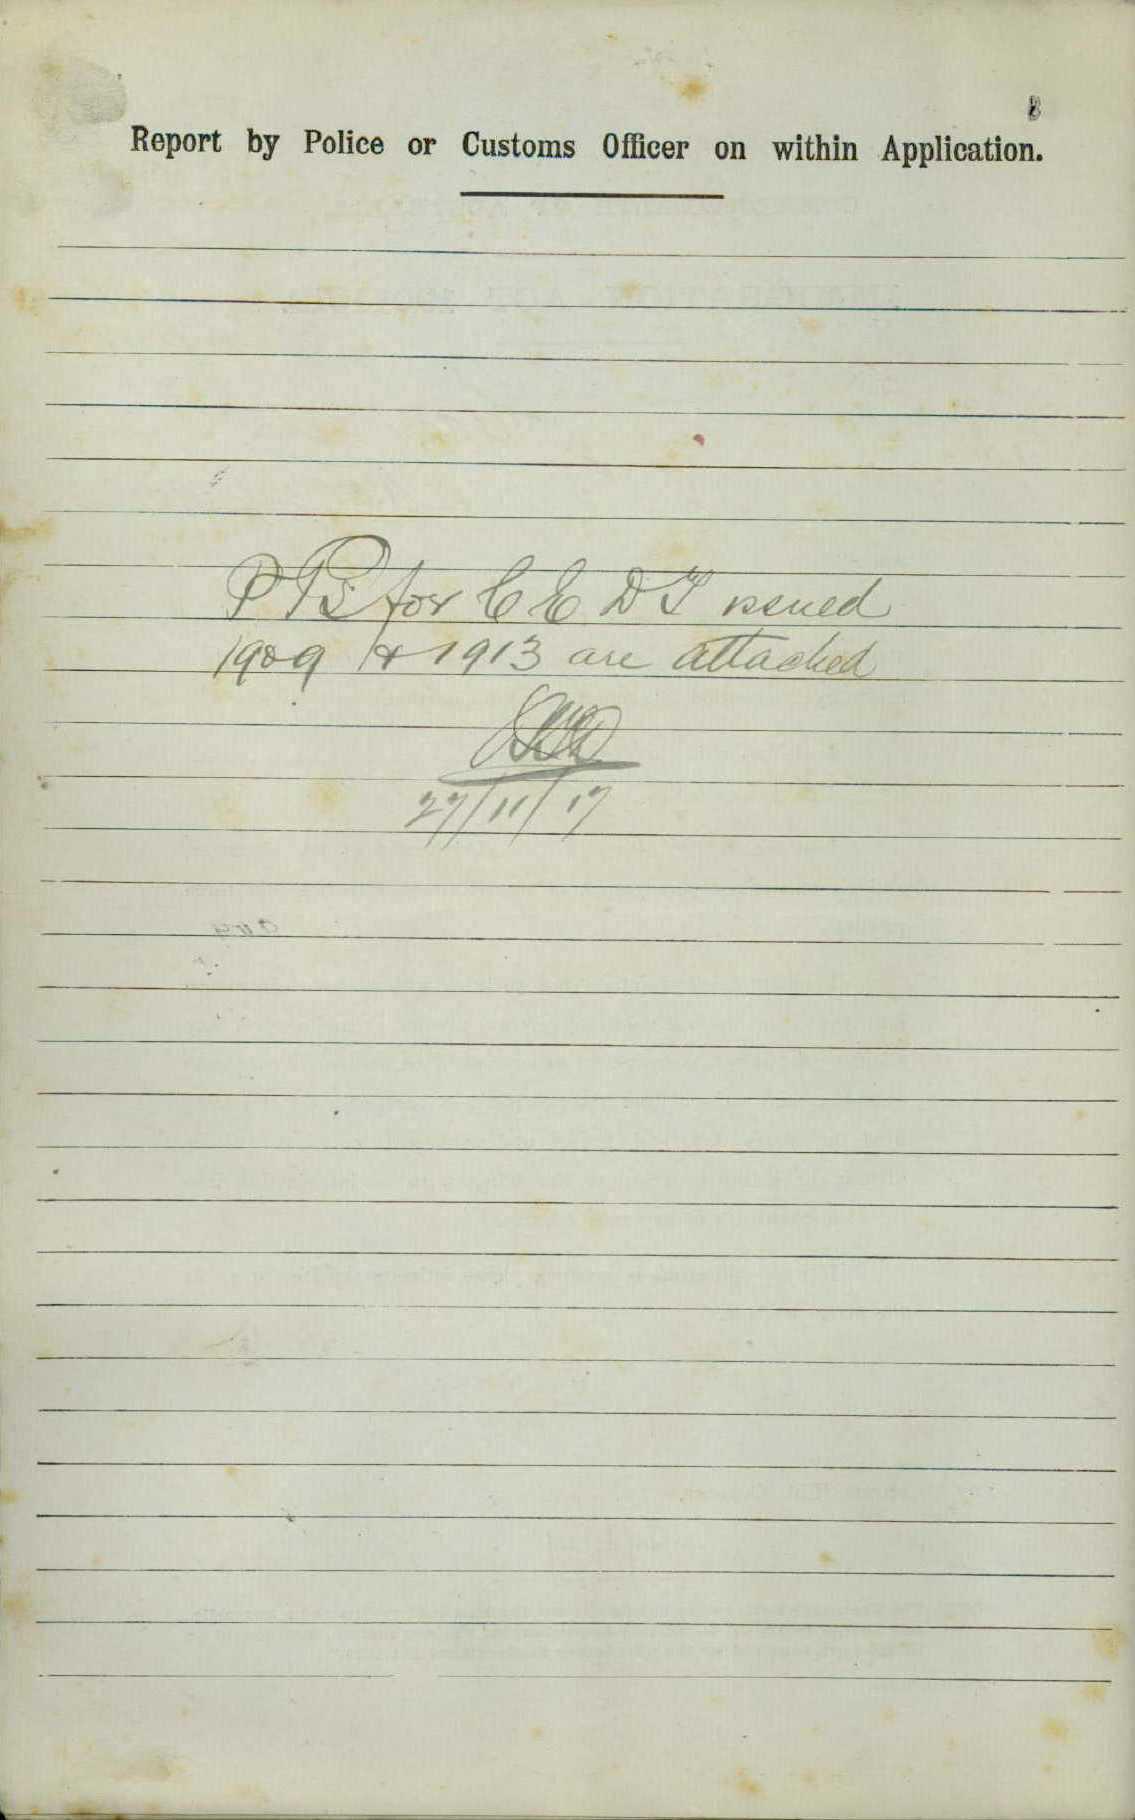 8
Report by Police or Customs Officer on within Application.
P Ps for C E D T issued
1909 & 1913 are attached
27/11/17